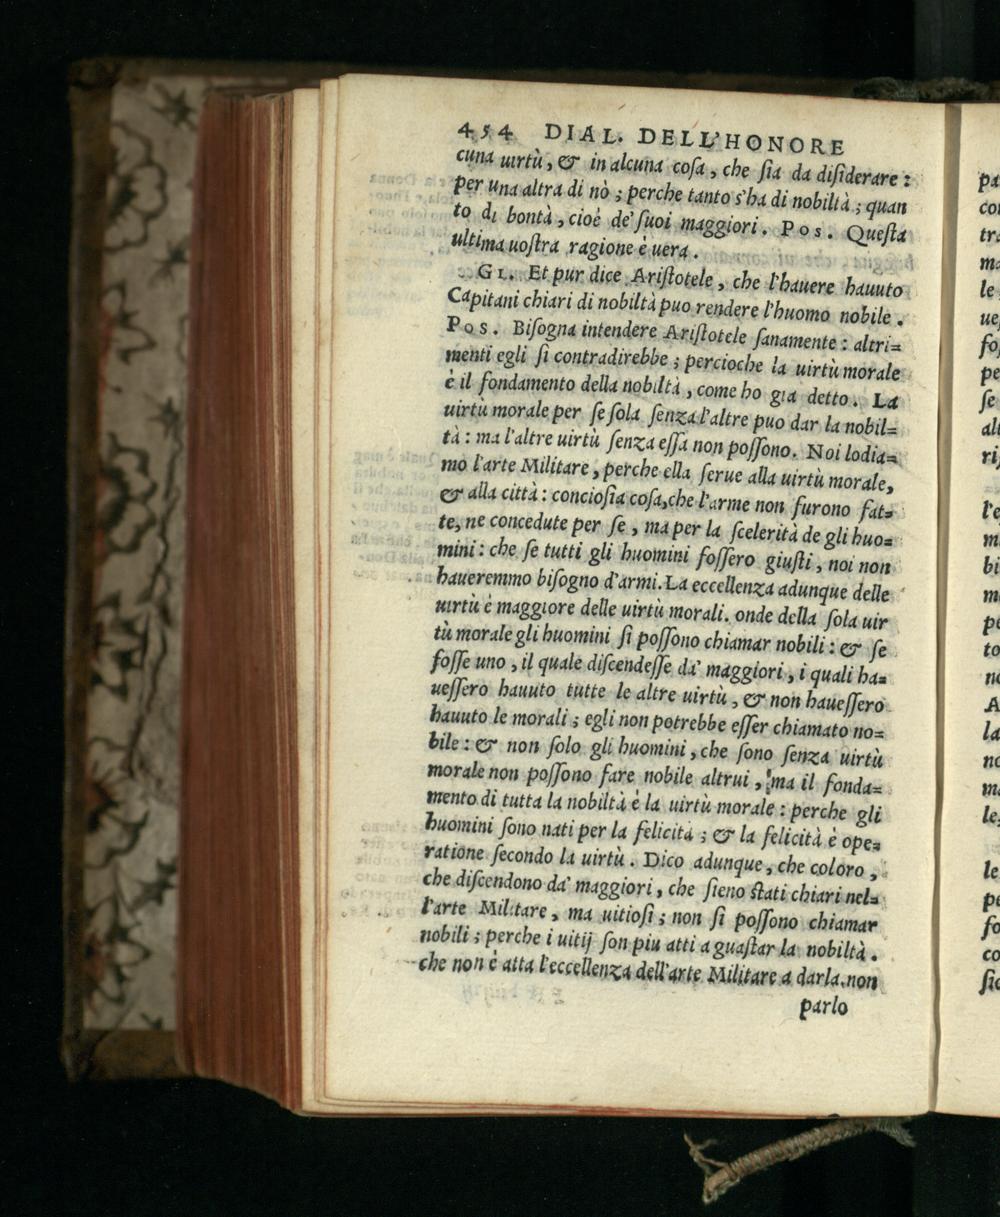 454 DIAL. DELL'HONORE
cuna uirtù, & in alcuna coſa, che ſia da diſiderare:
per una altra di nò; perche tanto s'ha di nobiltà; quan
to di bontà, cioè de' ſuoi maggiori. Pos. Queſta
ultima uoſtra ragione è uera.
Gl. Et pur dice Ariſtotele, che l'hauere hauuto
Capitani chiari di nobiltà puo rendere l'huomo nobile.
Pos. Biſogna intendere Ariſtotele ſanamente: altri=
menti egli ſi contradirebbe; percioche la uirtù morale
è il fondamento della nobiltà, come ho gia detto. La
uirtù morale per ſe ſola ſenza l'altre puo dar la nobil=
tà: ma l'altre uirtù ſenza eſſa non poſſono. Noi lodia=
mo l'arte Militare, perche ella ſerue alla uirtù morale,
& alla città: concioſia coſa, che l'arme non furono fat=
te, ne concedute per ſe, ma per la ſcelerità de gli huo=
mini: che ſe tutti gli huomini foſſero giuſti, noi non
haueremmo biſogno d'armi. La eccellenza adunque delle
uirtù è maggiore delle uirtù morali. onde della ſola uir
tù morale gli huomini ſi poſſono chiamar nobili: & ſe
foſſe uno, il quale diſcendeſſe da' maggiori, i quali ha=
ueſſero hauuto tutte le altre uirtù, & non haueſſero
hauuto le morali; egli non potrebbe eſſer chiamato no=
bile: & non ſolo gli huomini, che ſono ſenza uirtù
morale non poſſono fare nobile altrui, ma il fonda=
mento di tutta la nobiltà è la uirtù morale: perche gli
huomini ſono nati per la felicità; & la felicità è ope=
ratione ſecondo la uirtù. Dico adunque, che coloro,
che diſcendono da' maggiori, che ſieno ſtati chiari nel=
l'arte Militare, ma uitioſi; non ſi poſſono chiamar
nobili; perche i uitij ſon piu atti a guaſtar la nobiltà.
che non è atta l'eccellenza dell'arte Militare a darla. non
parlo